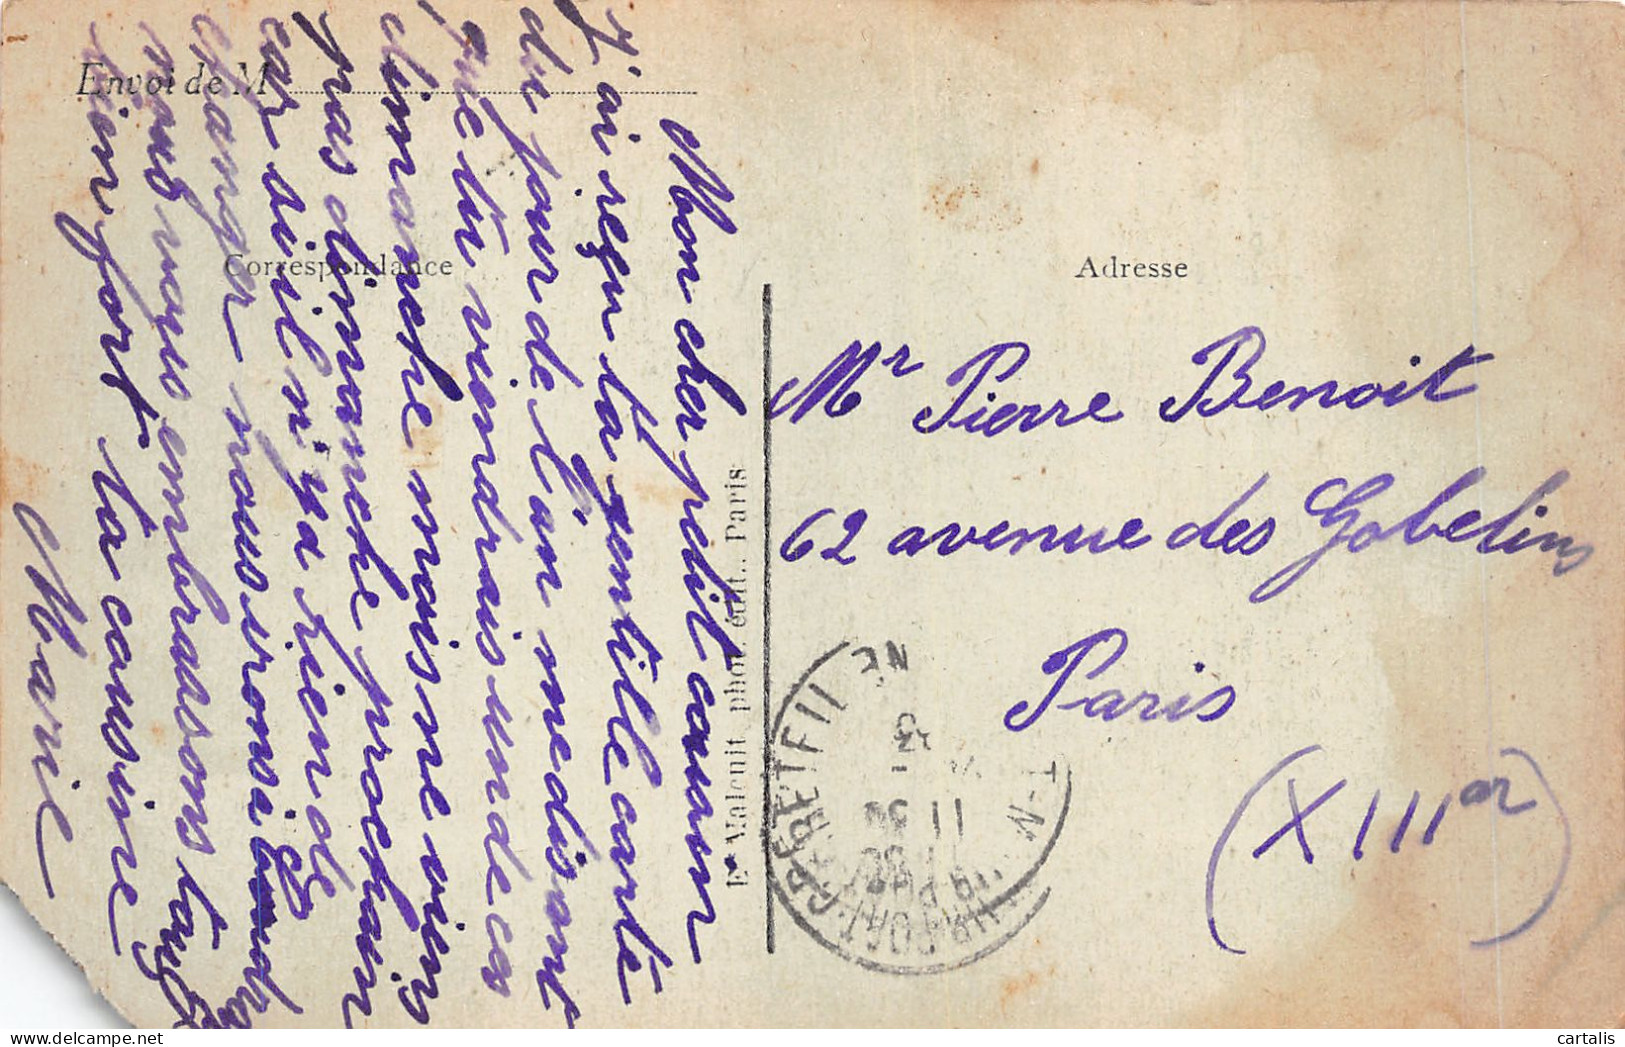 Envoi de M
Correspondance
Adresse
Mon cher petit cousin
J'ai reçu ta gentille carte
du jour de l'an me disant
que tu viendrais un de ces
dimanche mais ne viens
pas dimanche prochain
car s'il n'y a rien de
changer nous irons à
nous vous embrassons tous
bien fort ta cousine
Marie
E. Malcuit, phot. édit., Paris
Mr Pierre Benoit
62 avenue des Gobelins
Paris
(XIIIar)
cartalis